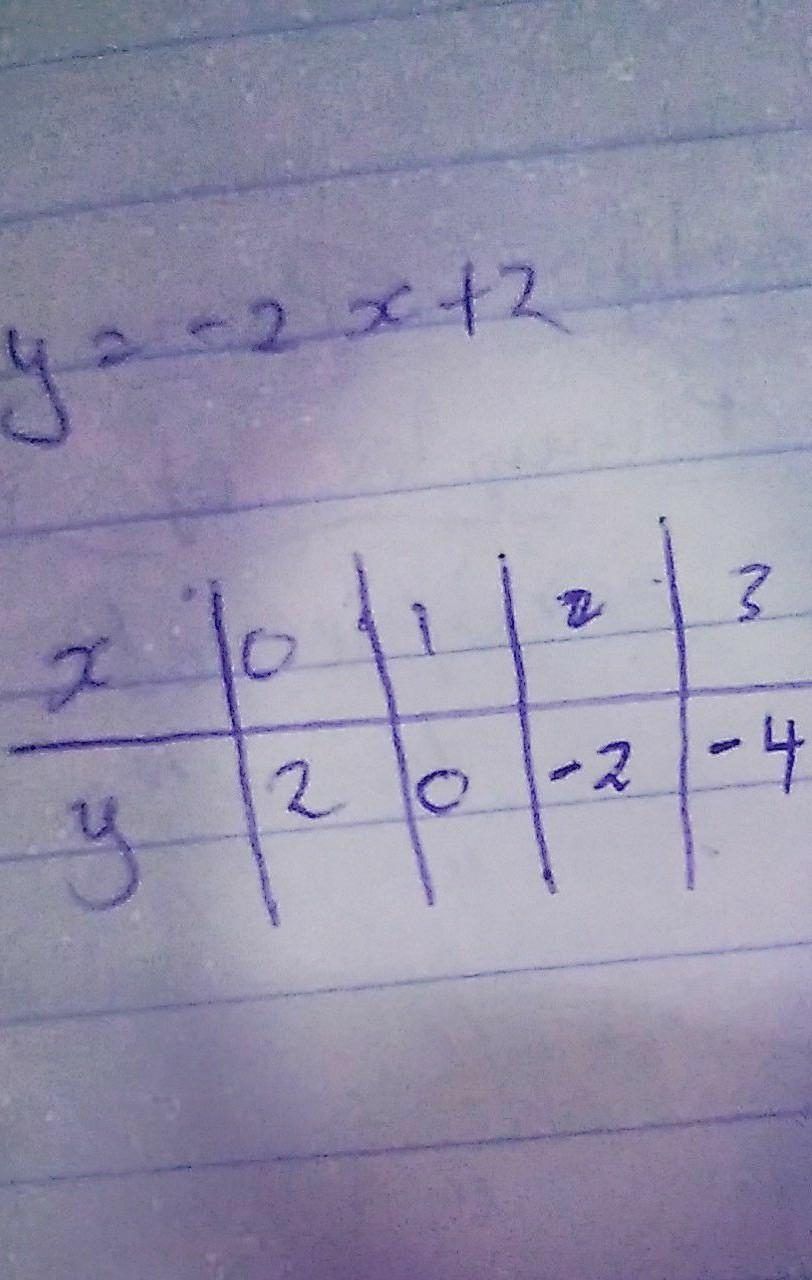 y = -2 x + 2
x | 0 | 1 | 2 | 3
y | 2 | 0 | -2 | -4